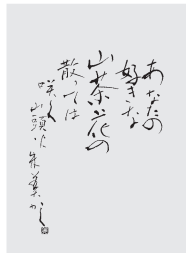 あなたの
好きな
山茶花の
散っては
咲く
山頭火